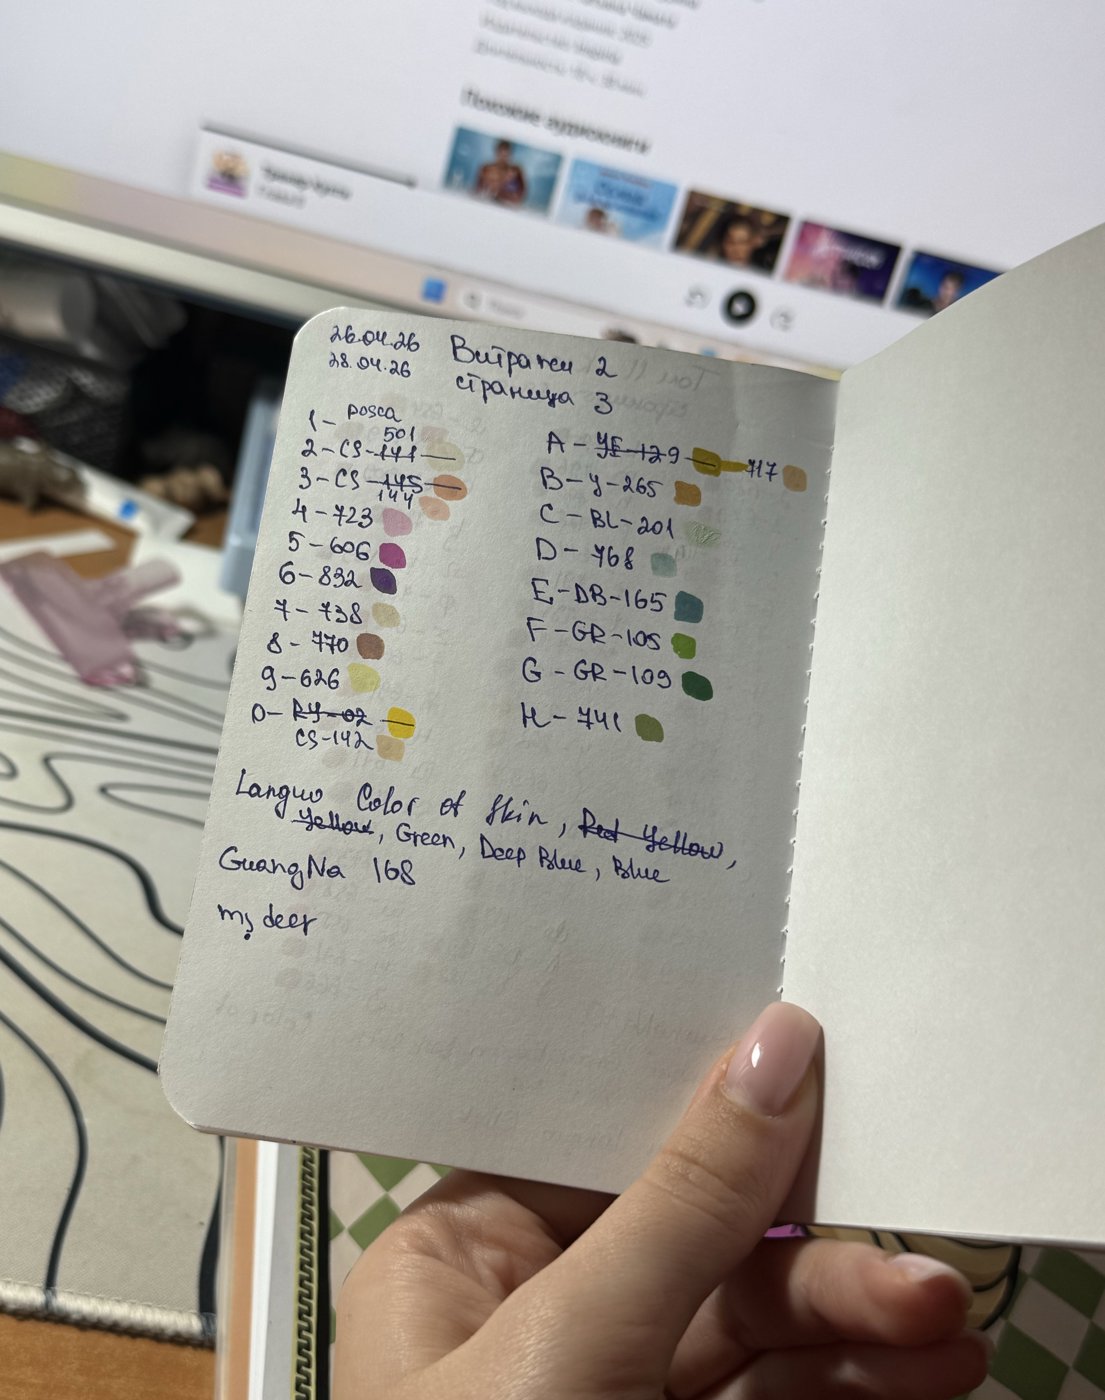 Похожие аудиокниги
26.04.26
28.04.26
Витражи 2
страница 3
1 - posca
2 - CS - 141 501
3 - CS - 145 144
4 - 723
5 - 606
6 - 832
7 - 738
8 - 770
9 - 626
0 - RY-02
CS-142
A - YE-129 717
B - Y-265
C - BL-201
D - 768
E - DB-165
F - GR-105
G - GR-109
H - 741
Languo Color of Skin, Red Yellow,
Yellow, Green, Deep Blue, Blue
GuangNa 168
ms deer